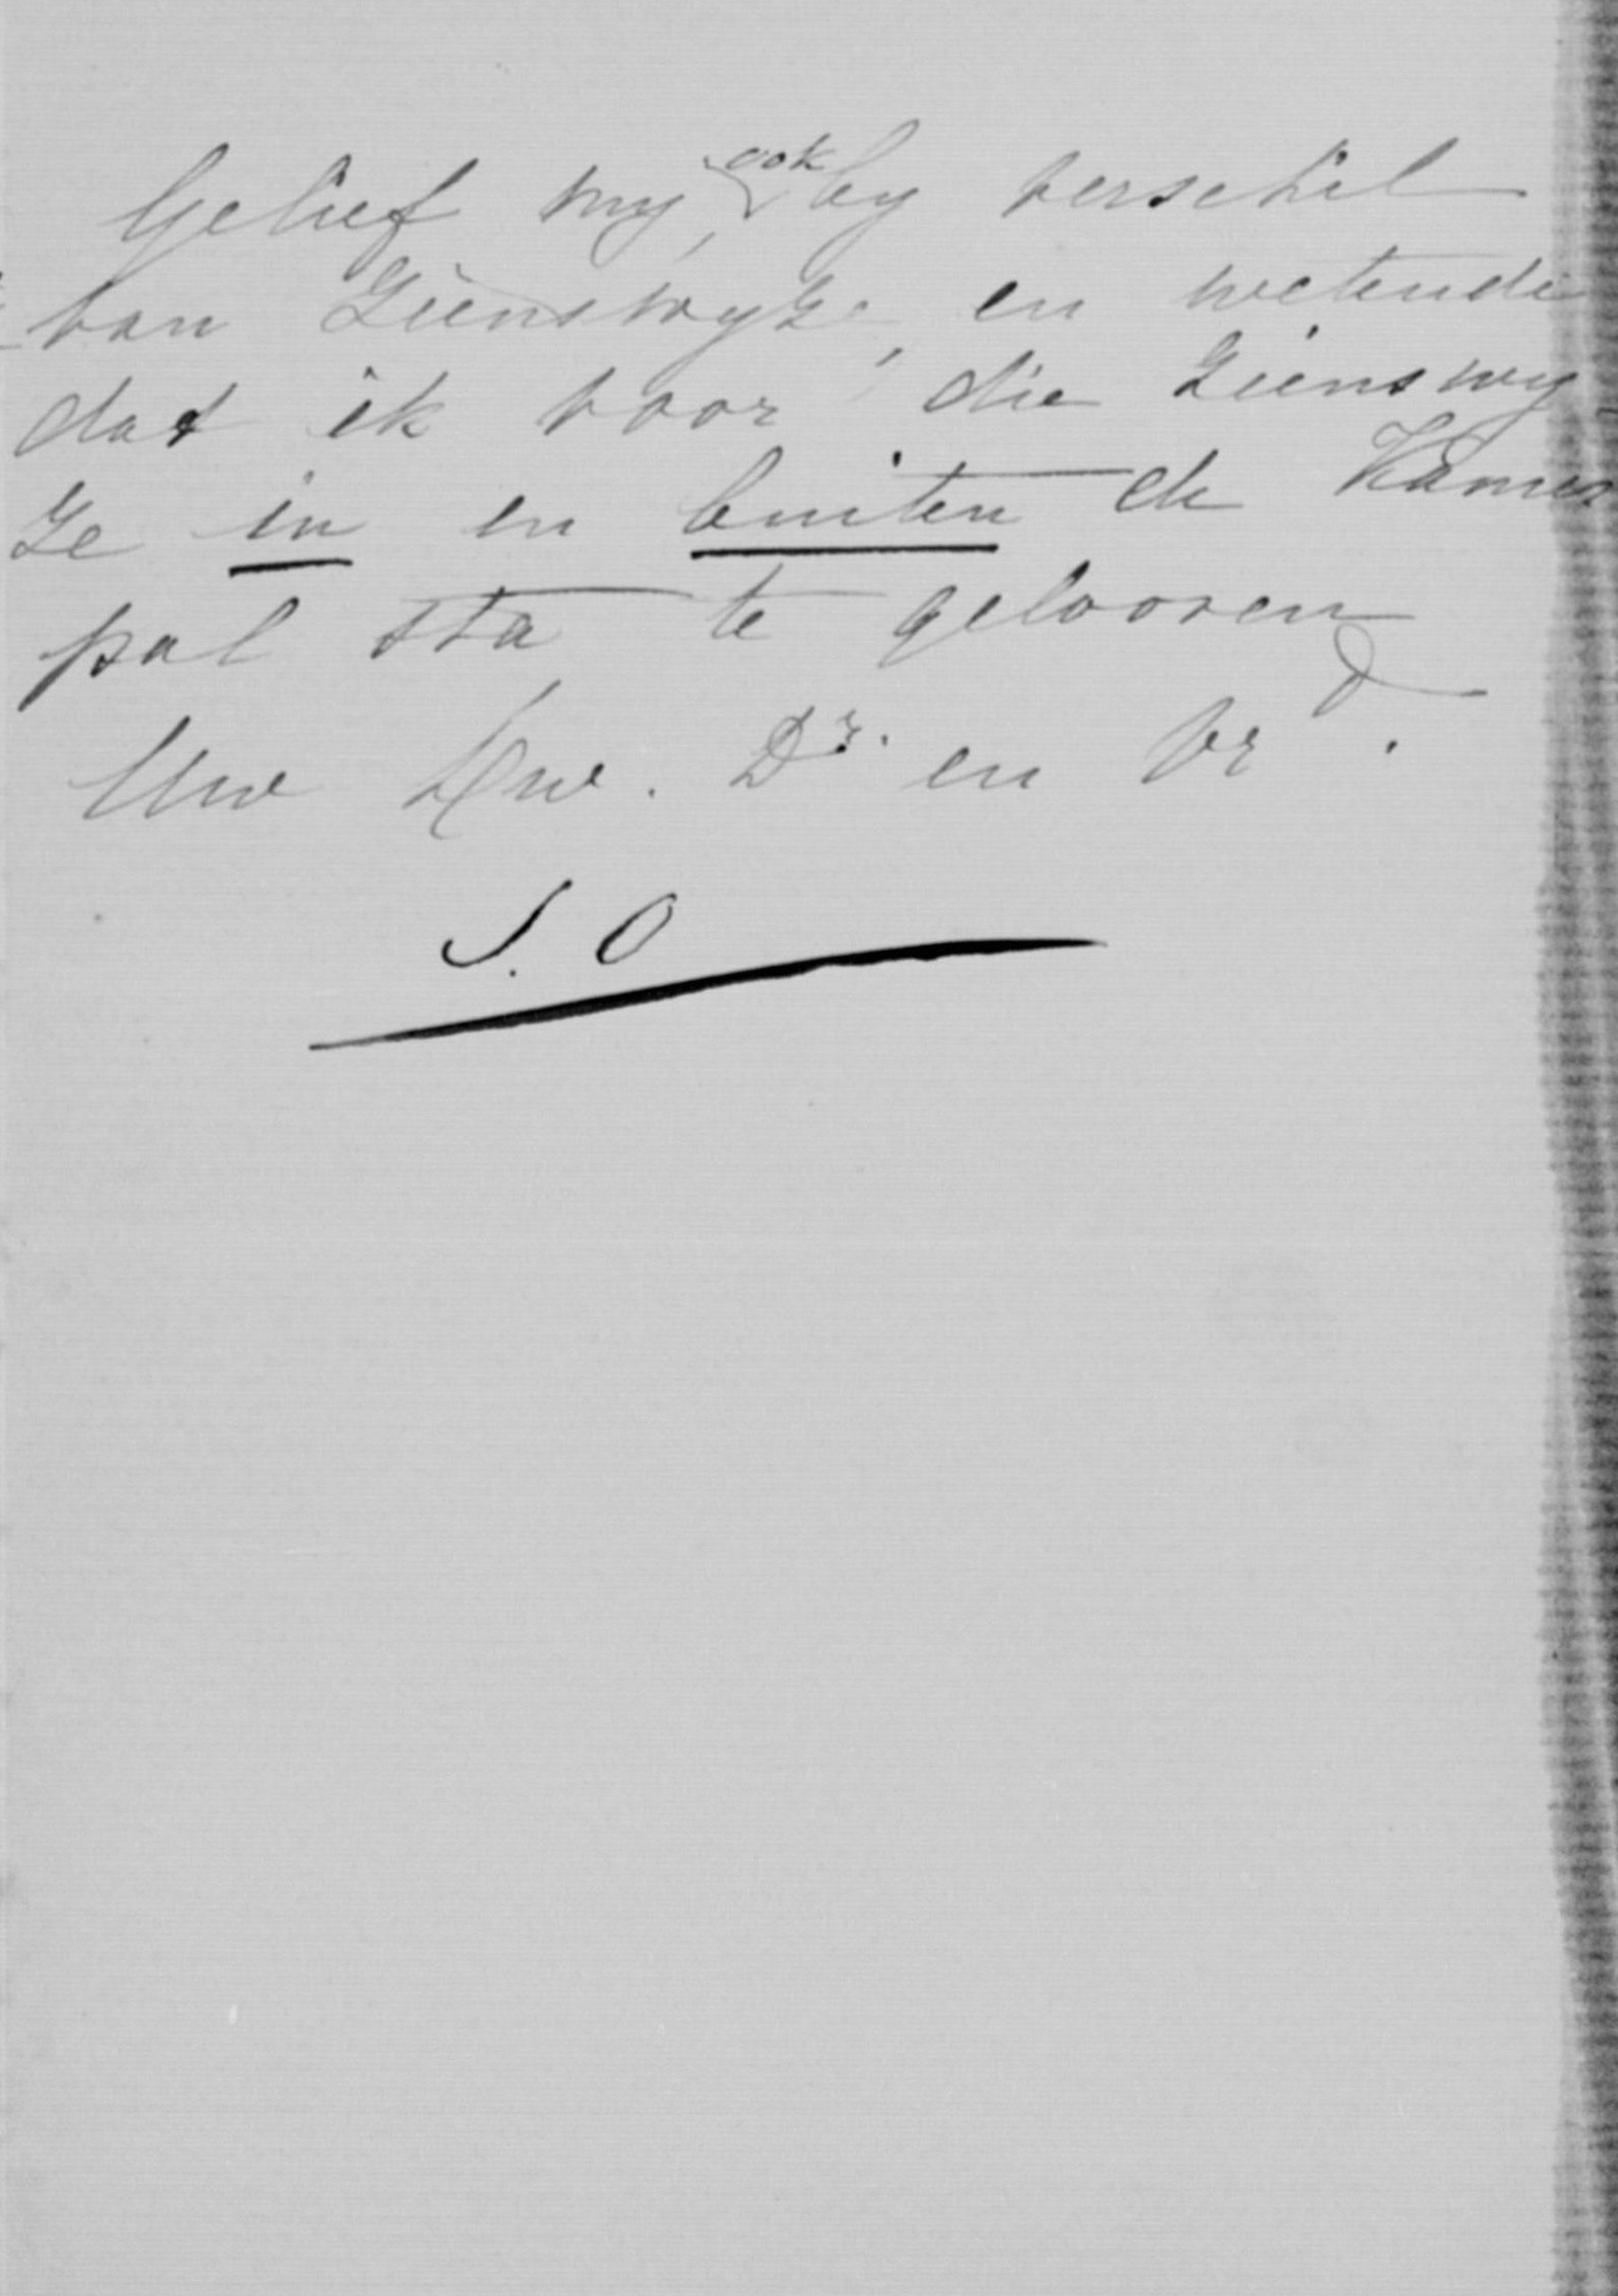 Gelief my, ook by verschil
van Zienswyze, en wetende
dat ik voor die Zienswy
ze in en buiten de Kamer
pal sta te gelooven
Uw Dw. Dr. en Vrd.
S. O